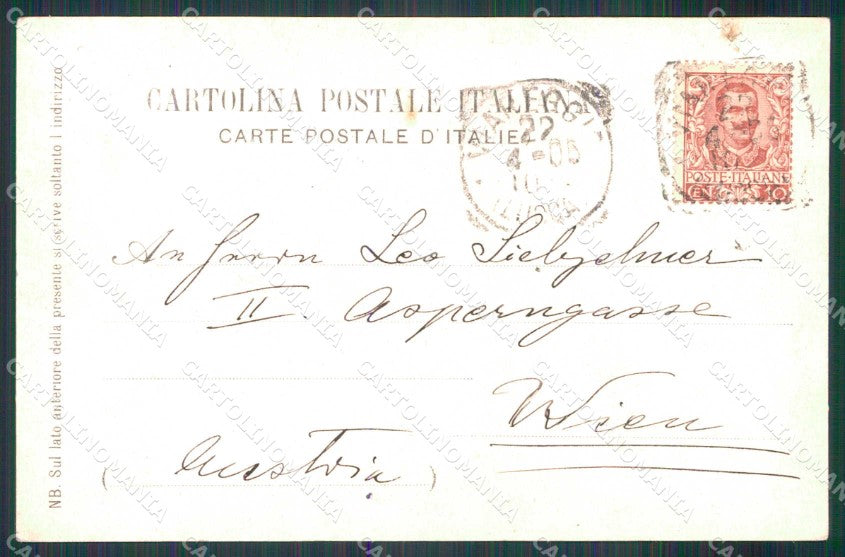 CARTOLINA POSTALE ITALIANA
CARTE POSTALE D'ITALIE
22
4-05
10
(LUCCA)
POSTE·ITALIANE
CENT. 10
An Herrn Leo Siebzehner
II. Asperngasse
Wien
(Austria)
NB. Sul lato anteriore della presente si scrive soltanto l'indirizzo
CARTOLINOMANIA